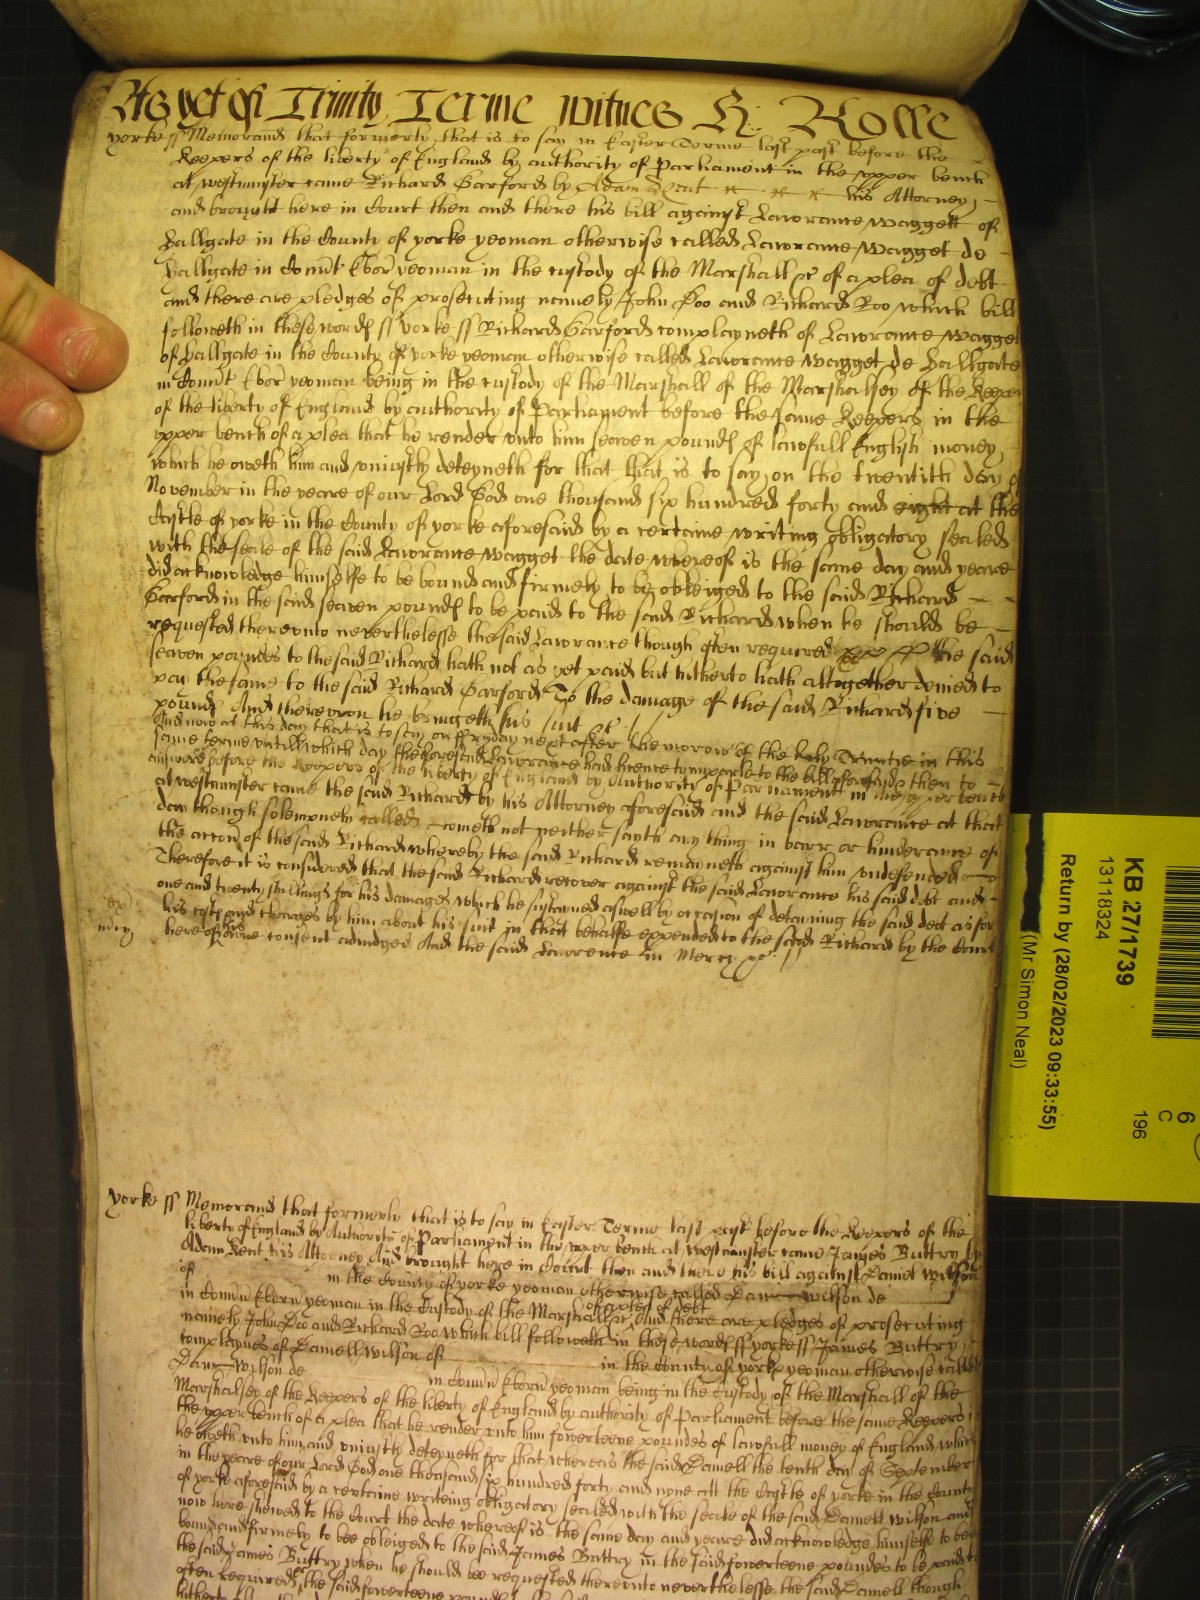 As yet of Trinity Terme witnes H: Rolle
yorke ss Memorand that formerly that is to say in Easter Terme last past before the
Keepers of the liberty of England by authority of Parliament in the upper bench
at westminster came Richard Garford by Adam Kent his Attorney
and brought here in Court then and there his bill against Lawrance Waggett of
Hallgate in the County of yorke yeoman otherwise called Lawrance Wagget de
Hallgate in Comit Ebor yeoman in the custody of the Marshall &c of a plea of debt
and there are pledges of prosecuting namely John Doo and Richard Roo which bill
followeth in these words ss yorke ss Richard Garford complayneth of Lawrance Wagget
of Hallgate in the County of yorke yeoman otherwise called Lawrance Wagget de Hallgate
in Comit Ebor yeoman being in the custody of the Marshall of the Marshalsey of the Keepers
of the liberty of England by authority of Parliament before the same Keepers in the
upper bench of a plea that he render unto him seaven pounds of lawfull English money
which he oweth him and uniustly deteyneth for that that is to say on the twentith day of
November in the yeare of our Lord God one thousand six hundred forty and eight at the
Castle of yorke in the County of yorke aforesaid by a certaine writing obligatory sealed
with the seale of the said Lawrance Wagget the date whereof is the same day and yeare
did acknowledge himselfe to be bound and firmely to be obleiged to the said Richard
Garford in the said seaven pounds to be paid to the said Richard when he should be
requested thereunto neverthelesse the said Lawrance though often required the said
seaven poundes to the said Richard hath not as yet paid but hitherto hath altogether denied to
pay the same to the said Richard Garford To the damage of the said Richard five
pounds And thereupon he bringeth his suit &c
And now at this day that is to say on Fryday next after the morow of the holy Trinitie in this
same terme untill which day the foresaid Lawrance had licence to imparle to the bill aforesaid & then to
answere before the Keepers of the liberty of England by Authority of Parliament in the upper bench
at westminster came the said Richard by his Attorney aforesaid and the said Lawrance at that
day though solempnely called cometh not neither sayth any thing in barr or hinderance of
the accon of the said Richard whereby the said Richard remayneth against him undefended
Therefore it is considered that the said Richard recover against the said Lawrance his said debt and
one and twenty shillings for his damages which he sustayned aswell by occasion of detaining the said debt as for
his costs and charges by him about his suit in that behalfe expended to the said Richard by the Court
here of his consent adiudged And the said Lawrence in Mercy &c
mercy
yorke ss Memorand that formerly that is to say in Easter Terme last past before the Keepers of the
liberty of England by Authority of Parliament in the upper bench at westminster came James Buttry by
Adam Kent his Attorney And brought here in Court then and there his bill against Daniel Wilson
of in the County of yorke yeoman otherwise called Dan Wilson de
in Comit Eborn yeoman in the Custody of the Marshall &c of a plea of debt And there are pledges of prosecuting
namely John Doo and Richard Roo which bill followeth in these words ss yorke ss James Buttry
complaynes of Daniell Wilson of in the County of yorke yeoman otherwise called
Dan Wilson de in Comit Eborn yeoman being in the Custody of the Marshall of the
Marshalsey of the Keepers of the liberty of England by authority of Parliament before the same Keepers in
the upper bench of a plea that he render unto him fowerteene poundes of lawfull money of England which
he oweth unto him and uniustly deteyneth for that whereas the said Daniell the tenth day of September
in the yeare of our Lord God one thousand six hundred forty and nyne att the Castle of yorke in the County
of yorke aforesaid by a certaine writeing obligatory sealed with the seale of the said Daniell Wilson and
now here shewed to the Court the date whereof is the same day and yeare did acknowledge himselfe to bee
bound and firmely to bee obleiged to the said James Buttry in the said fowerteene poundes to be paid to
the said James Buttry when he should bee requested thereunto neverthelesse the said Daniell though
often required the said fowerteene pounds
KB 27/1739
13118324
Return by (28/02/2023 09:33:55)
(Mr Simon Neal)
6
C
196